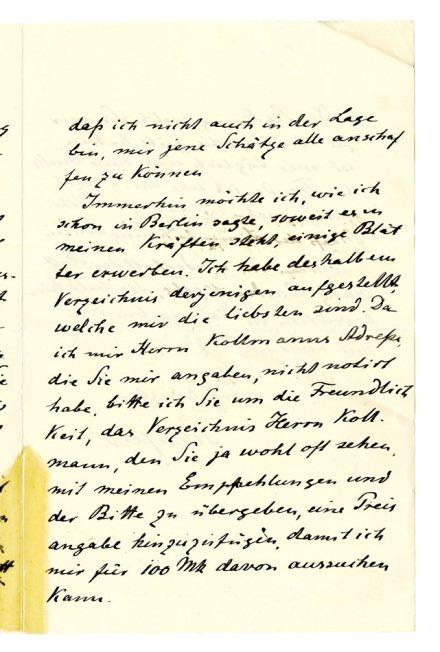 daß ich nicht auch in der Lage
bin, mir jene Schätze alle anschaf
fen zu können
Immerhin möchte ich, wie ich
schon in Berlin sagte, soweit es in
meinen Kräften steht, einige Blät
ter erwerben. Ich habe deshalb ein
Verzeichnis derjenigen aufgestellt,
welche mir die liebsten sind. Da
ich mir Herrn Kollmanns Adresse,
die Sie mir angaben, nicht notirt
habe, bitte ich Sie um die Freundlich
keit, das Verzeichnis Herrn Koll-
mann, den Sie ja wohl oft sehen,
mit meinen Empfehlungen und
der Bitte zu übergeben, eine Preis
angabe hinzuzufügen, damit ich
mir für 100 Mk davon aussuchen
kann.